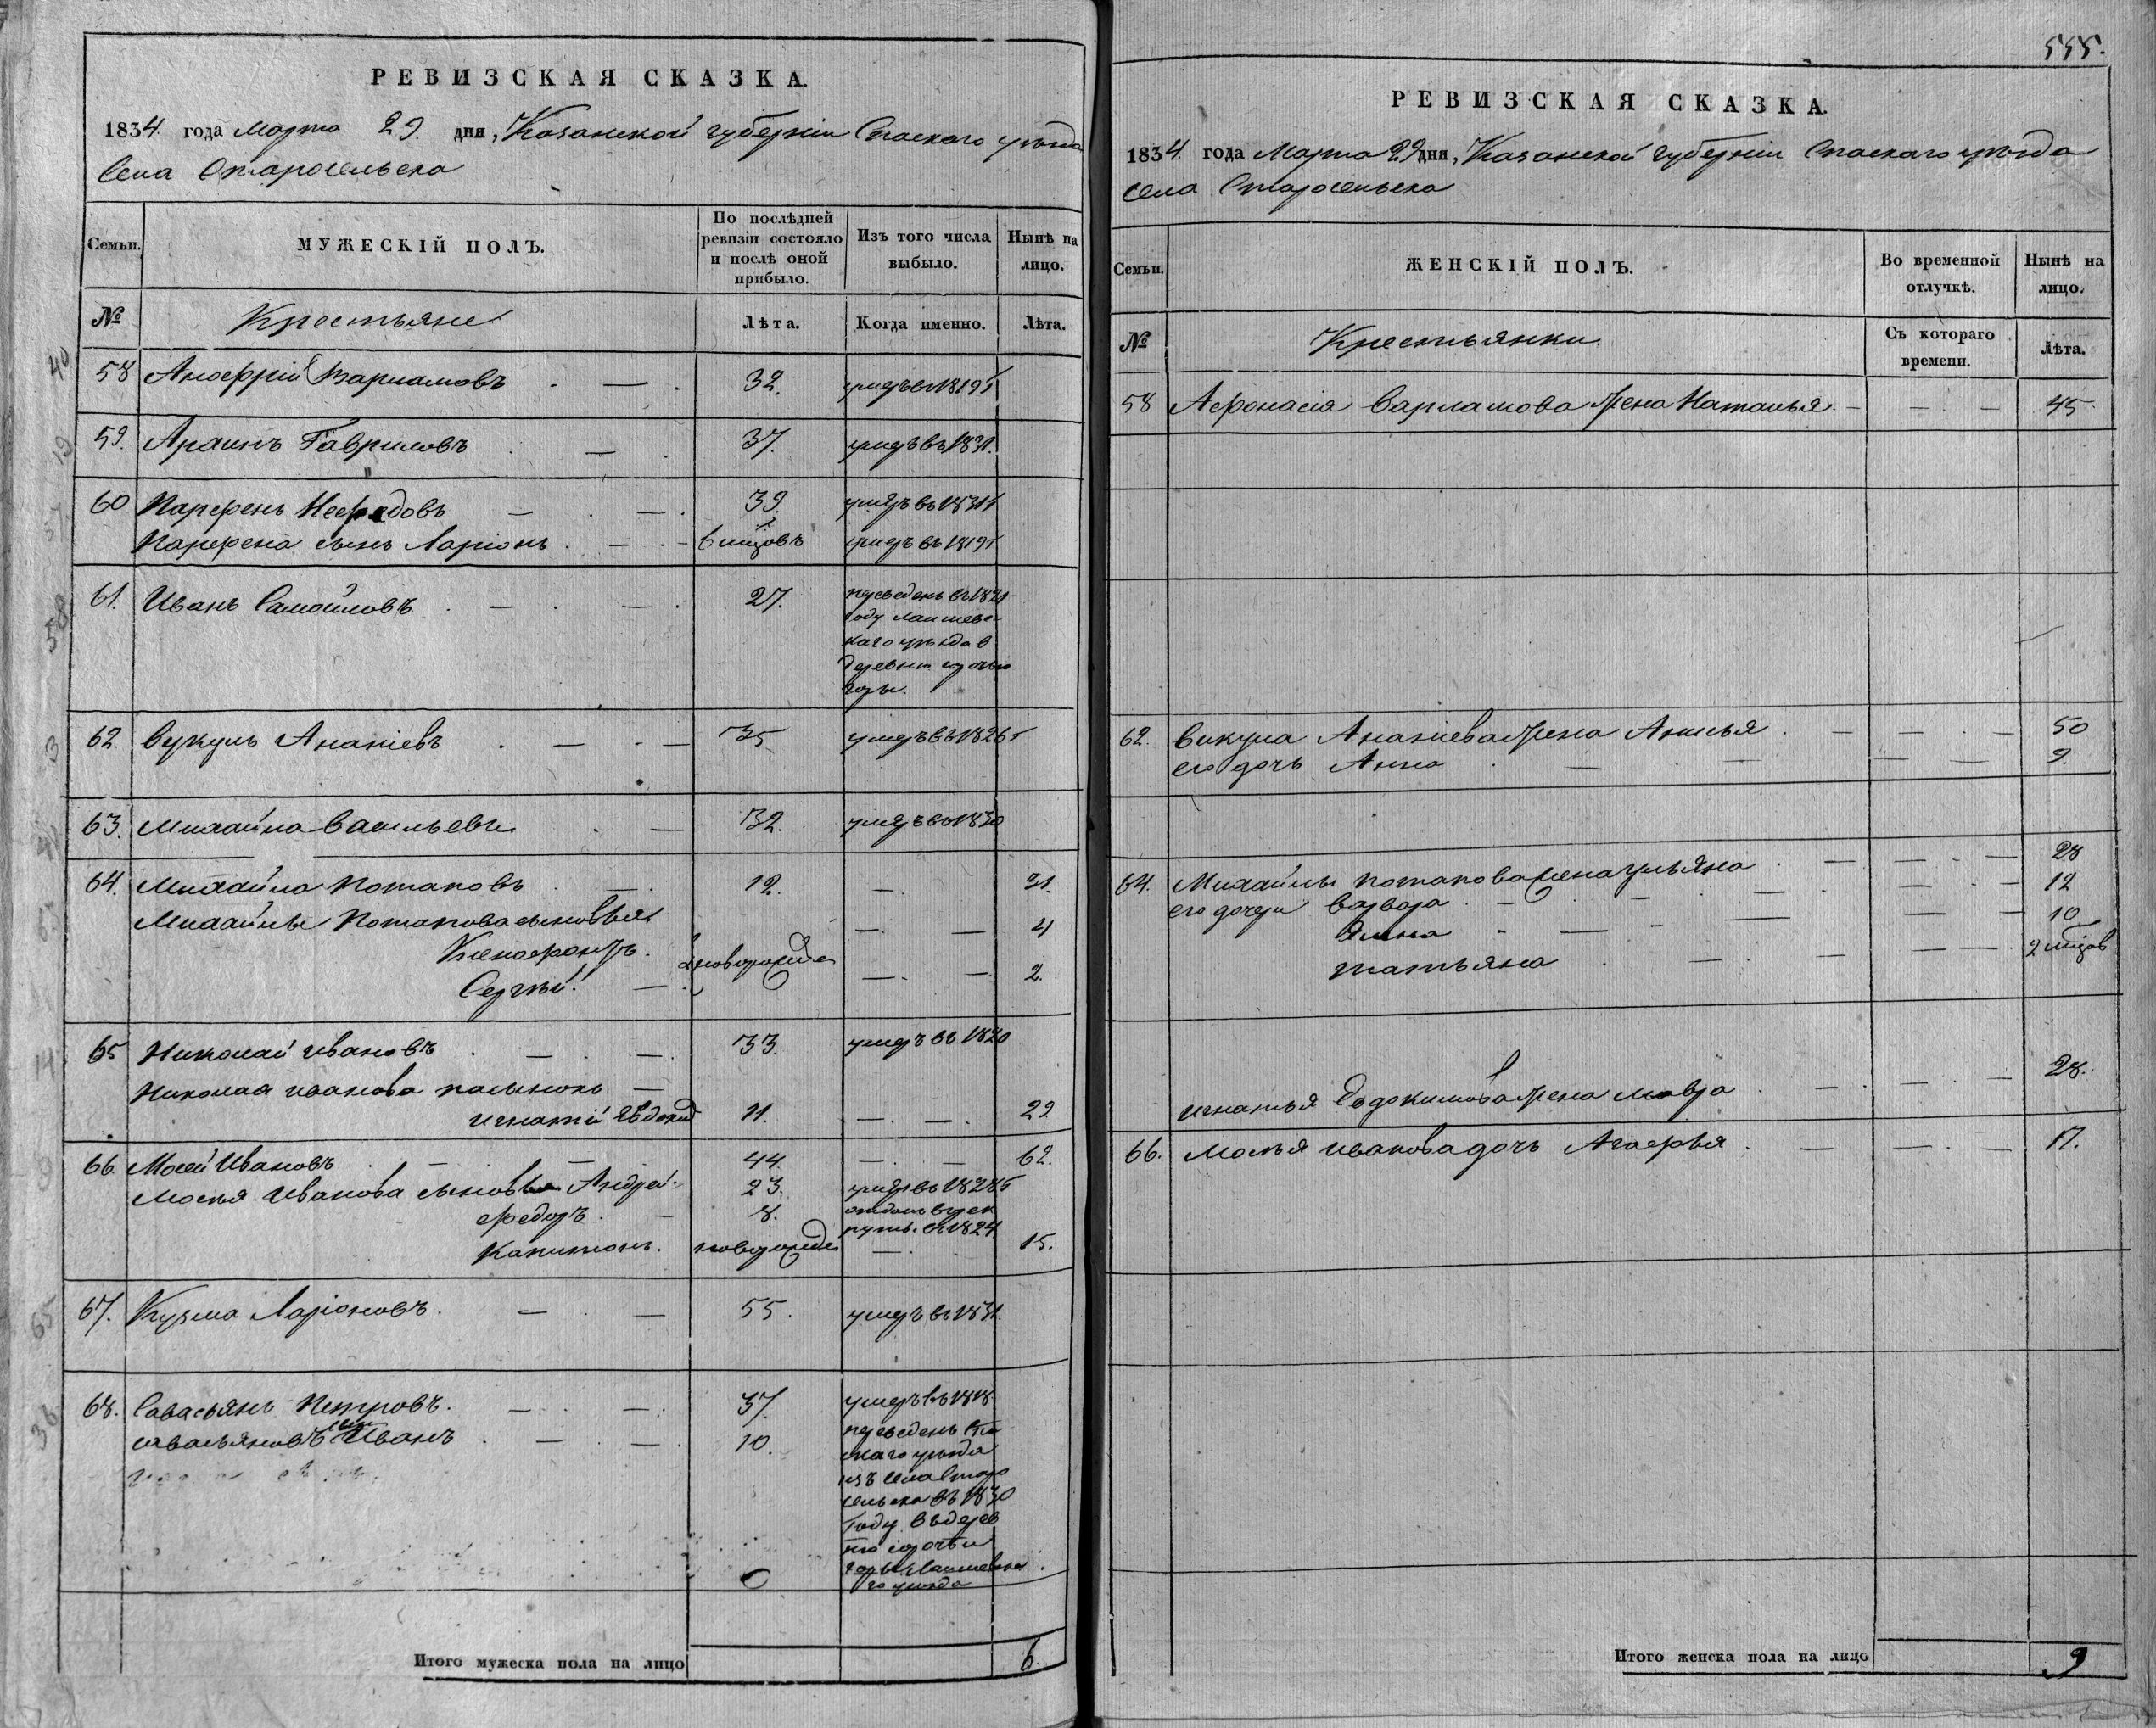 РЕВИЗСКАЯ СКАЗКА.
1834. года Марта 29. дня, Казанской губерніи Спаского уѣзда
Села Старосельска
Семьи.
МУЖЕСКІЙ ПОЛЪ.
По послѣдней ревизіи состояло и послѣ оной прибыло.
Изъ того числа выбыло.
Нынѣ на лицо.
№
Крестьяне
Лѣта.
Когда именно.
Лѣта.
58 Варламовъ 32. 1819
59. Гавриловъ 37. умеръ въ 1831.
60 Парфенъ 39. умеръ въ 1831
Парфена сынъ Ларіонъ 6 умеръ въ 1819
61. Иванъ Самойловъ 27. переведенъ въ 1821
году Лаишевс
каго уѣзда в
деревню
горы.
62. Вукулъ Ананіевъ 35 умеръ въ 1826
63. Михайла Васильевъ 32. умеръ въ 1830
64. Михайла Потаповъ 12. 31.
Михайлы Потапова сыновья
Ксенофонтъ. новорожде 4
Сергѣй. 2.
65 Николай Ивановъ 33. умеръ въ 1820
Николая Иванова пасынокъ
Игнатій Евдоким 11. 29
66. Мосей Ивановъ 44. 62.
Мосѣя Иванова сыновья Андрей 23. умеръ въ 1828
Федоръ. 8. отданъ в рек
руты въ 1824
Капитонъ. новорожде 15.
67. Кузма Ларіоновъ. 55. умеръ въ 1831.
68. Савасьянъ Петровъ. 37. умеръ въ 1818
савасьяновъ сынъ Иванъ 10. переведенъ Спа
скаго уѣзда
изъ села Старо
сельска въ 1830
году въ дерев
ню
горы Лаишевска
го уѣзда
Итого мужеска пола на лицо 6.
555.
РЕВИЗСКАЯ СКАЗКА.
1834. года Марта 29 дня, Казанской губерніи Спаскаго уѣзда
села Старосельска
Семьи.
ЖЕНСКІЙ ПОЛЪ.
Во временной отлучкѣ.
Нынѣ на лицо.
№
Крестьянки
Съ котораго времени.
Лѣта.
58 Афонасія Варламова жена Наталья 45
62. Викула Ананіева жена Анисья 50
его дочь Анна 9.
64. Михайлы Потапова жена Ульяна 28
его дочери Варвара 12
10
татьяна 2
Игнатья Евдокимова жена Мавра 28.
66. Мосѣя Иванова дочь Агафья 17.
Итого женска пола на лицо 9